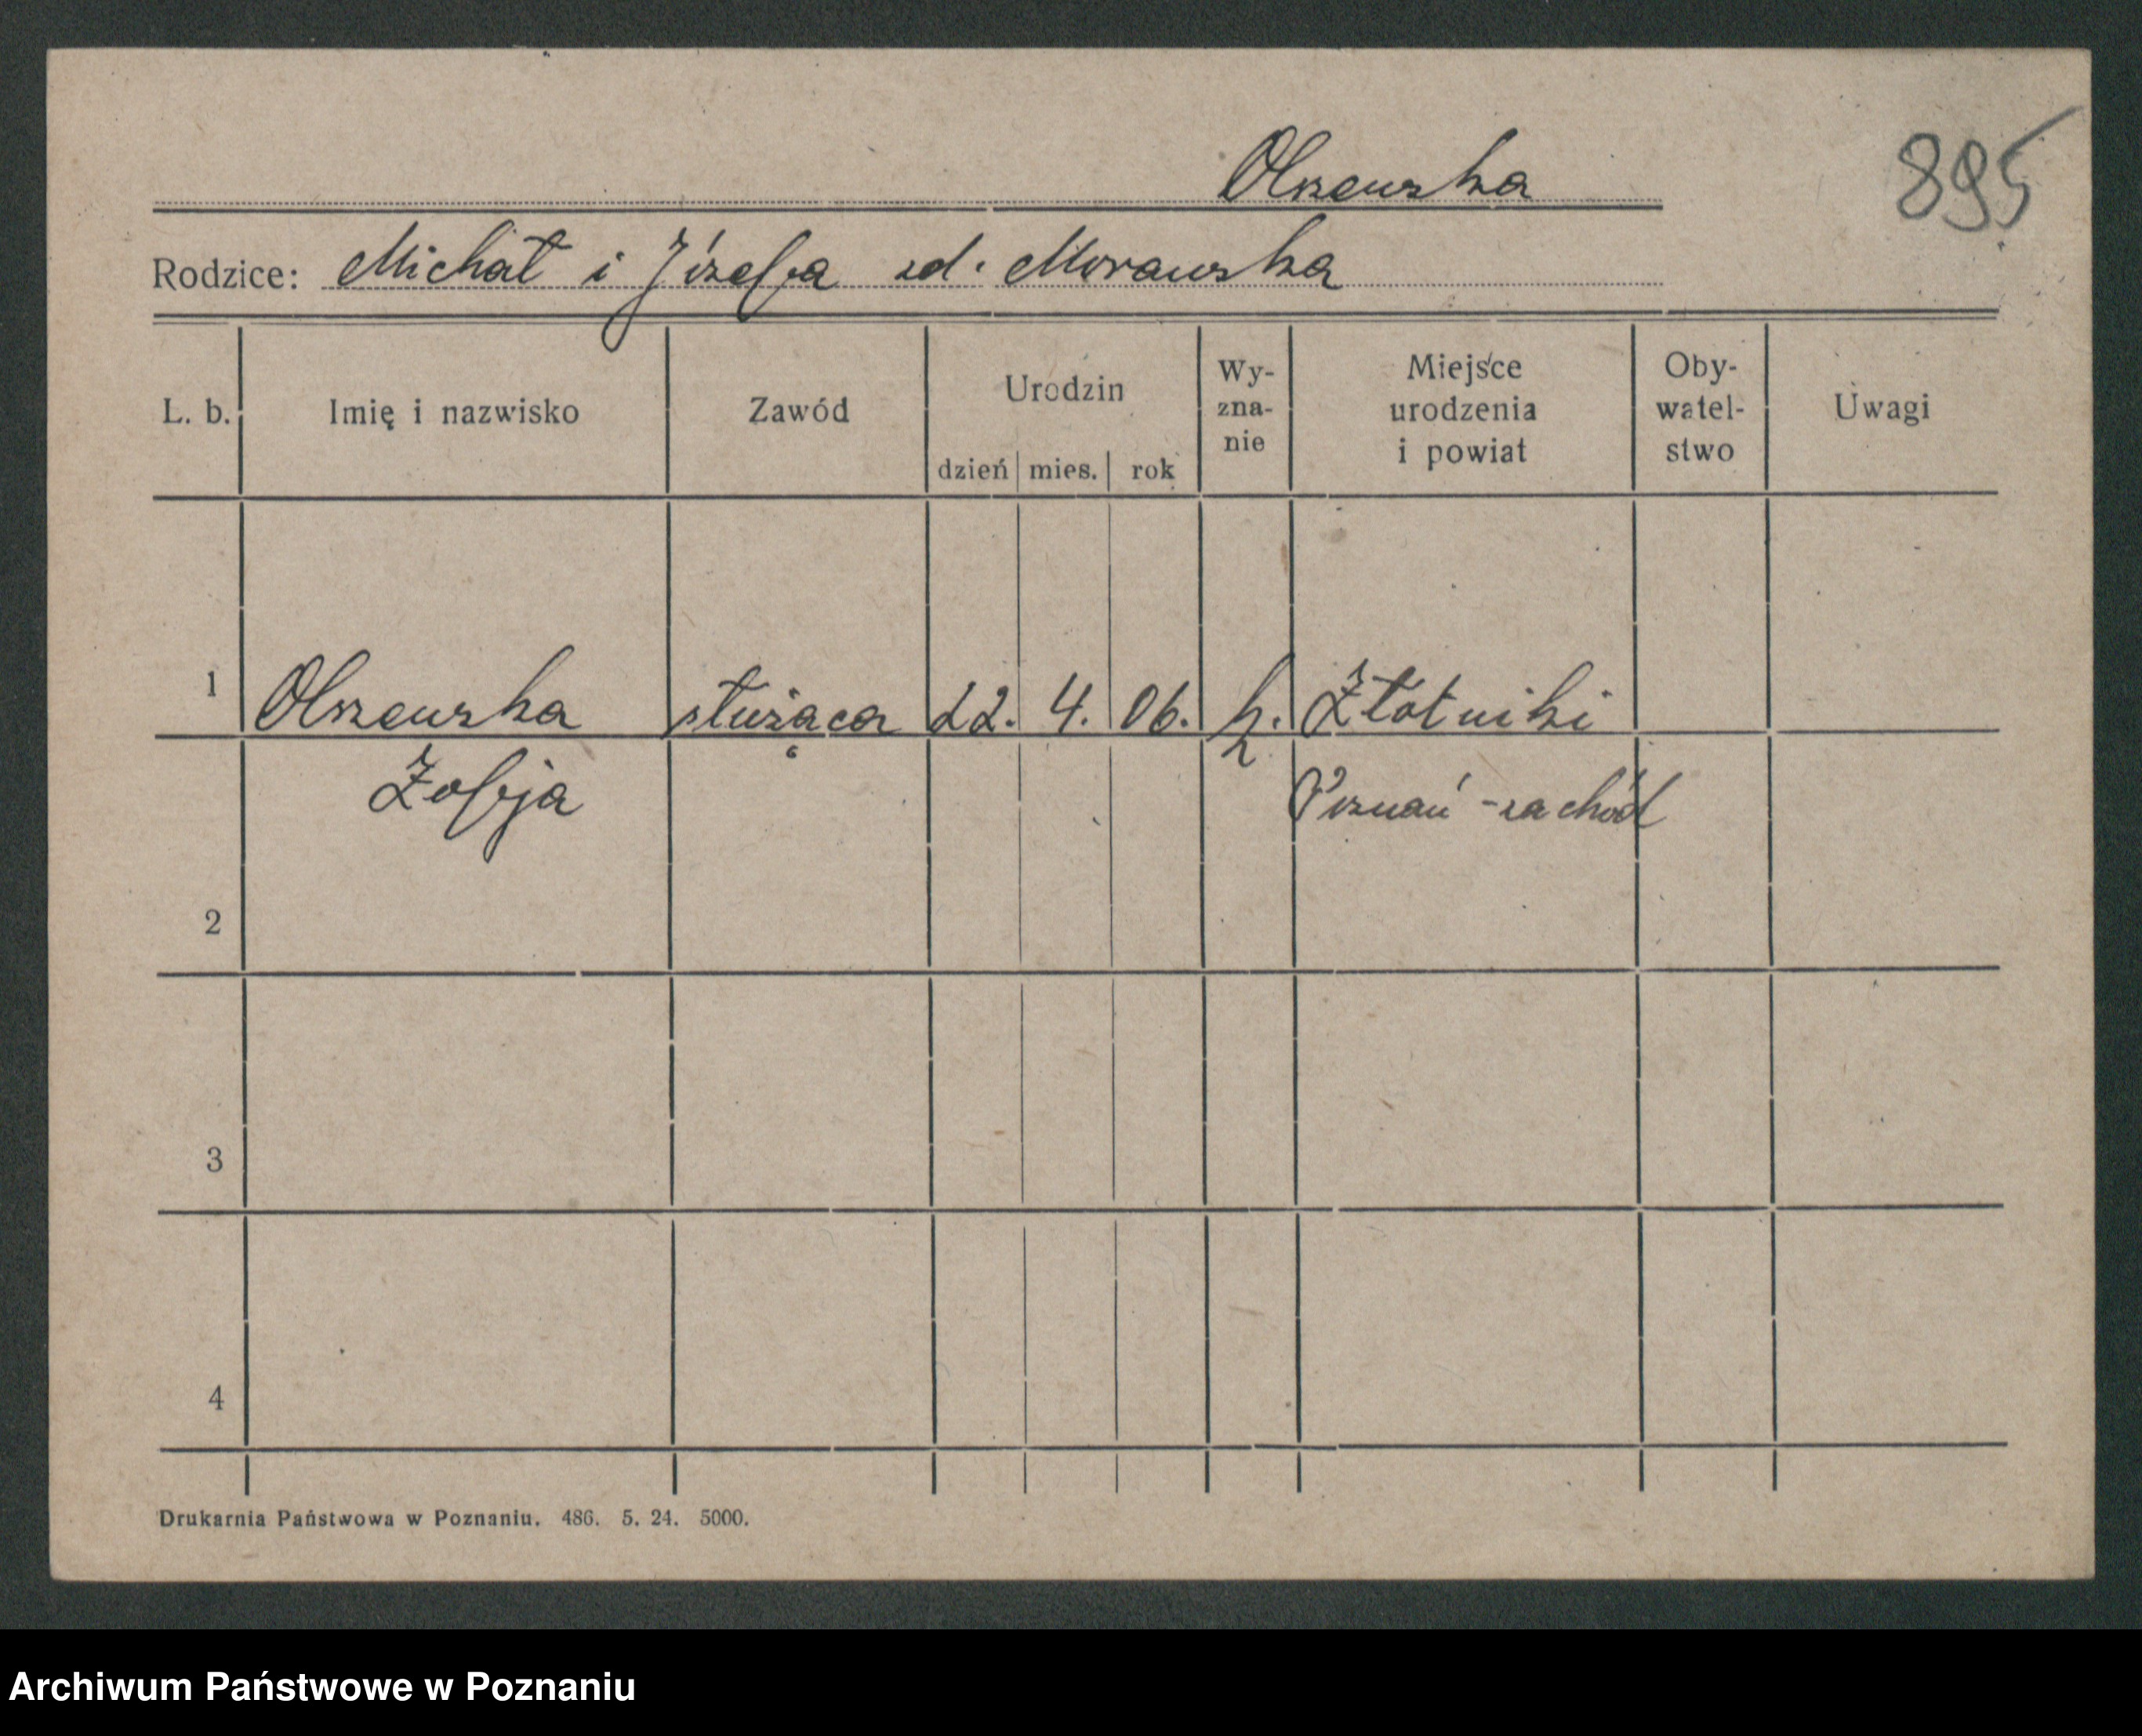 Olszewska
895
Rodzice: Michał i Józefa zd. Morawska
L. b. Imię i nazwisko Zawód Urodzin dzień mies. rok Wy-zna-nie Miejsce urodzenia i powiat Oby-watel-stwo Uwagi
1 Olszewska służąca 22. 4. 06. k. Złotniki
Zofja Poznań - zachód
2
3
4
Drukarnia Państwowa w Poznaniu. 486. 5. 24. 5000.
Archiwum Państwowe w Poznaniu